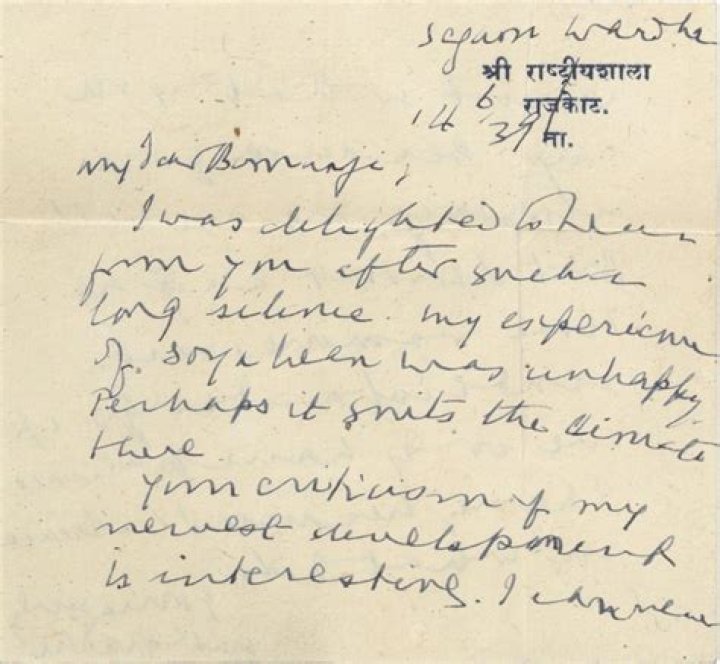 Segaon Wardha
श्री राष्ट्रीयशाला
राजकोट.
14 6 39
ता.
My dear Bomanji,
I was delighted to hear
from you after such a
long silence. My experience
of soya bean was unhappy.
Perhaps it suits the climate
there
Your criticism of my
newest development
is interesting. I